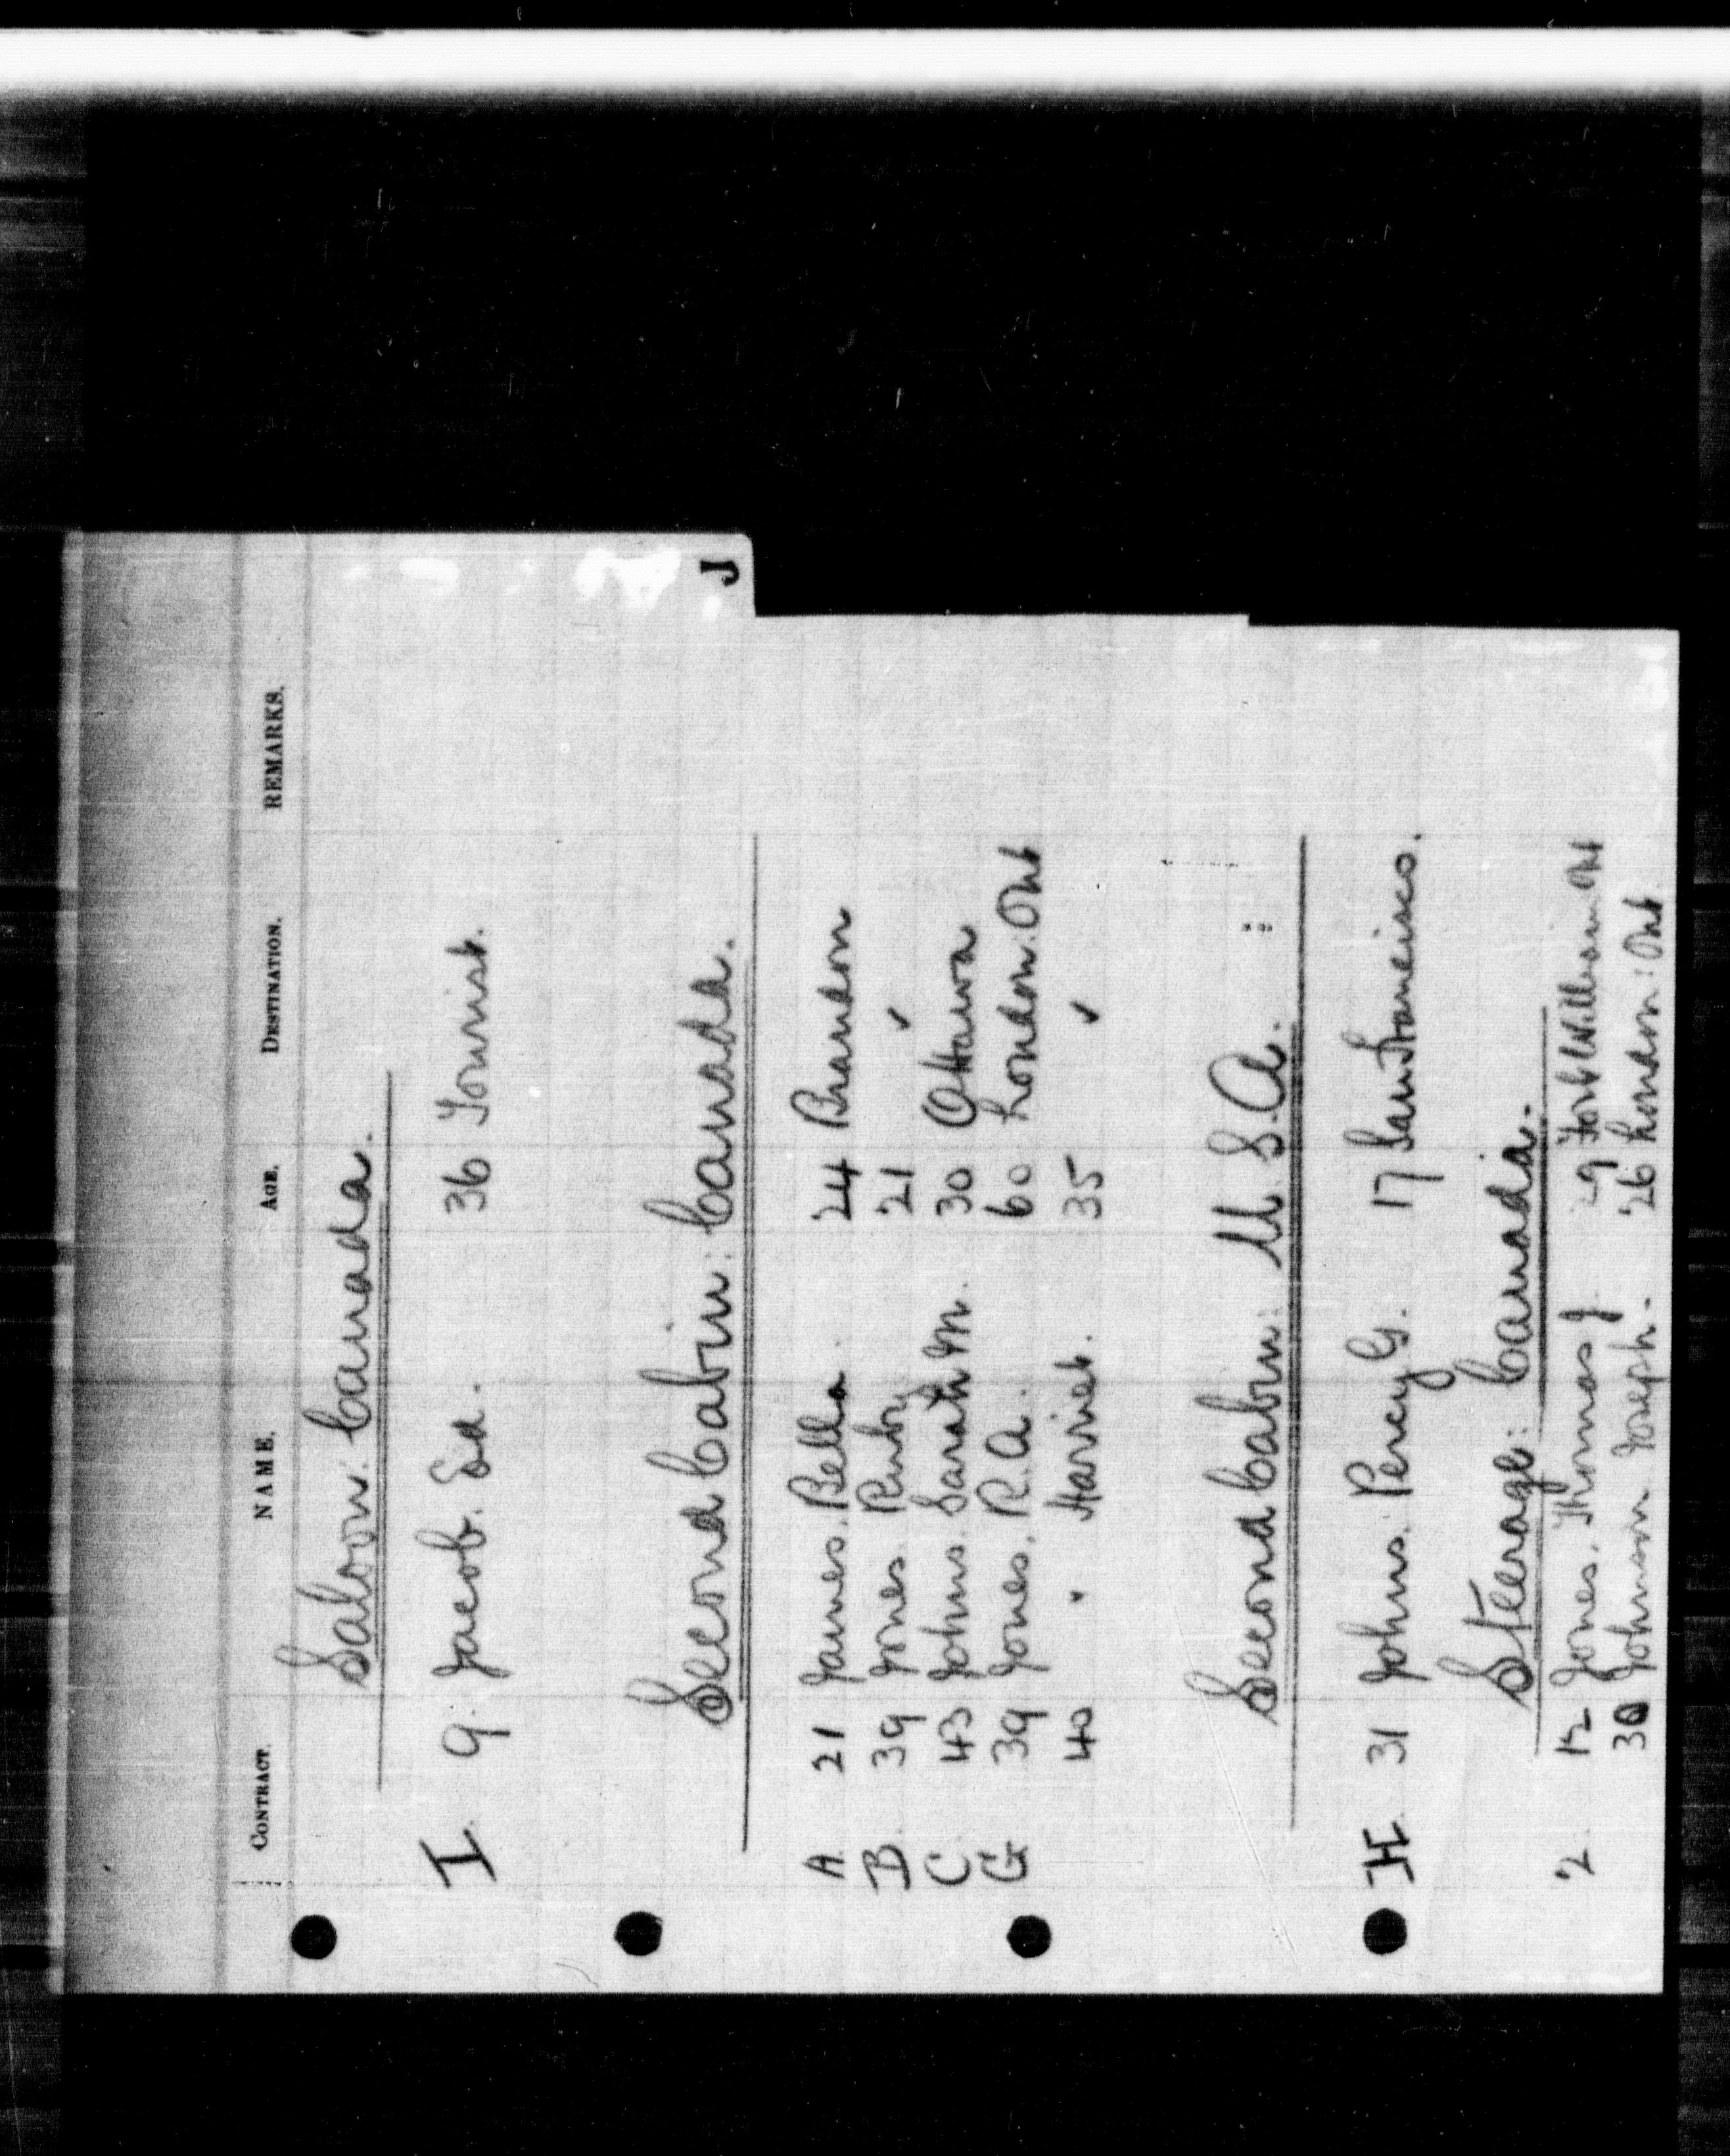 CONTRACT. NAME. AGE. DESTINATION. REMARKS.
Saloon: Canada.
I 9. Jacob. Ed. 36 Tourist.
J
Second Cabin: Canada.
A. 21 James. Bella. 24 Brandon
B 39 Jones Ruby 21 ✓
C 43 Johns. Sarah M. 30 Ottawa
G 39 Jones. R.A. 60 London. Ont
40 " Harriet. 35 ✓
Second Cabin: U.S.A.
H 31 Johns. Percy G. 17 San Francisco.
Steerage: Canada.
2 12 Jones. Thomas J 29 Fort William Ont
30 Johnson Joseph. 26 London: Ont